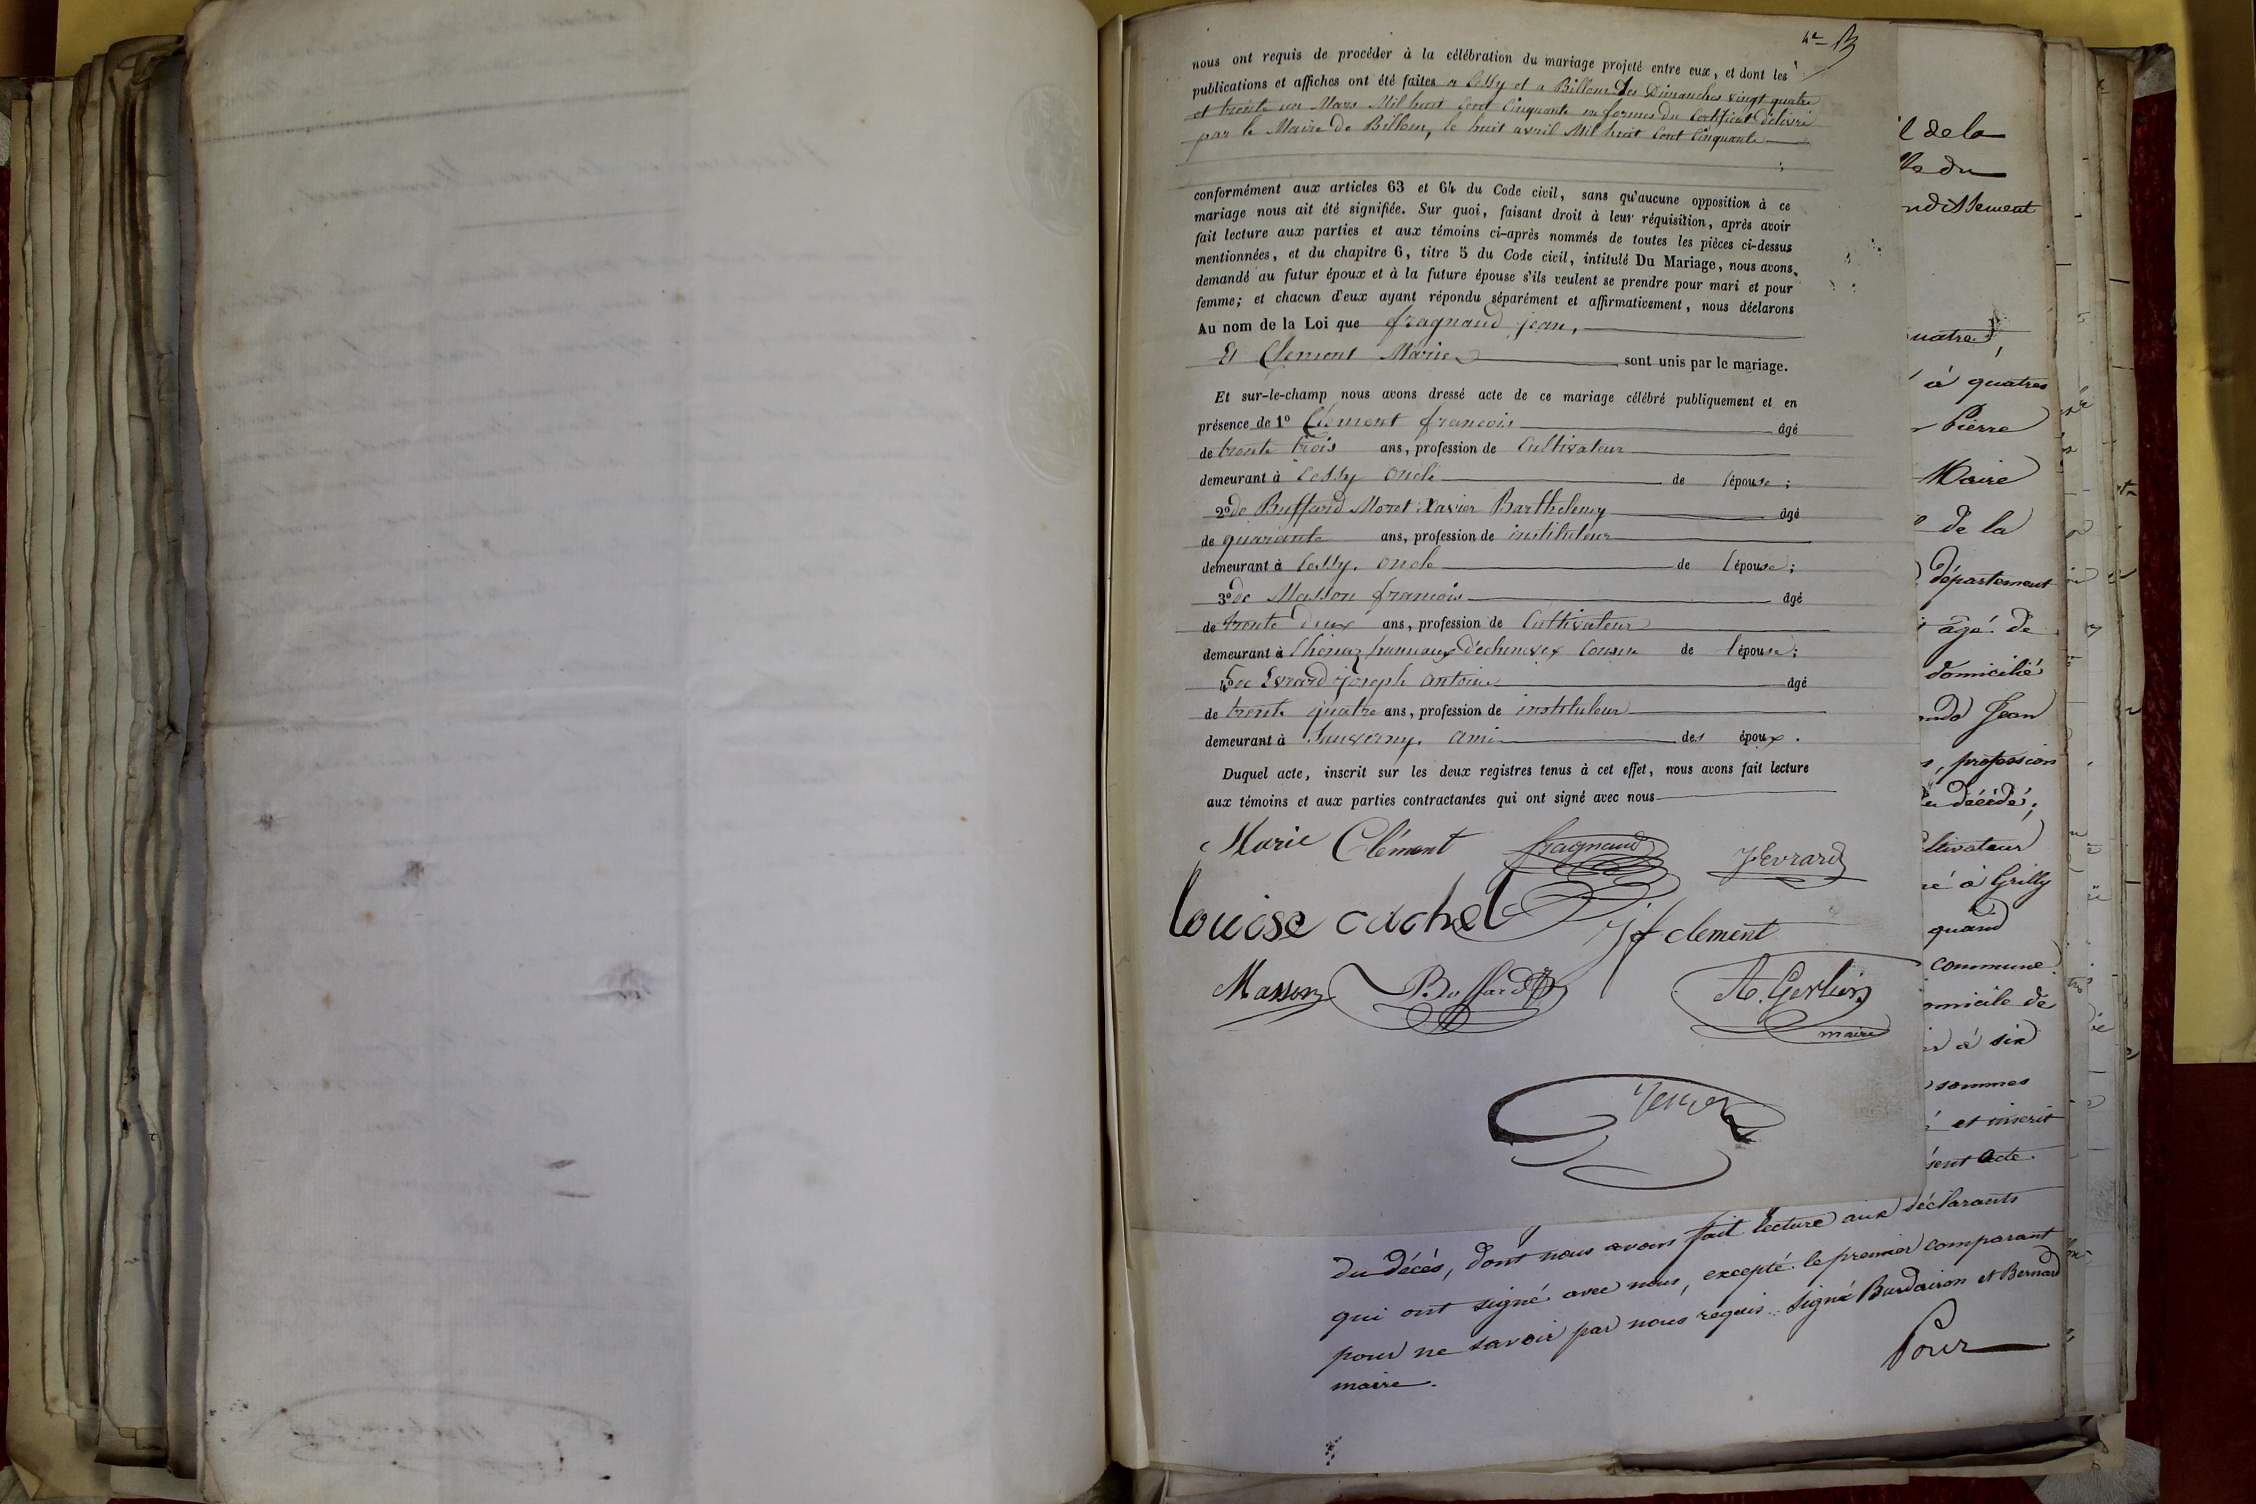 nous ont requis de procéder à la célébration du mariage projeté entre eux, et dont les
publications et affiches ont été faites a Cessy et a Billem des Dimanches vingt quatre
et trente un Mars Mil huit Cent Cinquante en formes du Certificat délivré
par le Maire de Billem, le huit avril Mil huit Cent Cinquante
conformément aux articles 63 et 64 du Code civil, sans qu'aucune opposition à ce
mariage nous ait été signifiée. Sur quoi, faisant droit à leur réquisition, après avoir
fait lecture aux parties et aux témoins ci-après nommés de toutes les pièces ci-dessus
mentionnées, et du chapitre 6, titre 5 du Code civil, intitulé Du Mariage, nous avons
demandé au futur époux et à la future épouse s'ils veulent se prendre pour mari et pour
femme; et chacun d'eux ayant répondu séparément et affirmativement, nous déclarons
Au nom de la Loi que fragnaud jean,
Et Clement Marie sont unis par le mariage.
Et sur-le-champ nous avons dressé acte de ce mariage célébré publiquement et en
présence de 1º Clement francois âgé
de trente trois ans, profession de Cultivateur
demeurant à Cessy oncle de l'épouse;
2º de Buffard Moret Xavier Barthelemy âgé
de quarante ans, profession de instituteur
demeurant à Cessy. oncle de l'épouse;
3º de Masson francois âgé
de trente deux ans, profession de Cultivateur
demeurant à Chenaz hameaux d'echenevex Cousin de l'épouse;
4º de Evrard joseph antoine âgé
de trente quatre ans, profession de instituteur
demeurant à Sauverny, ami des époux.
Duquel acte, inscrit sur les deux registres tenus à cet effet, nous avons fait lecture
aux témoins et aux parties contractantes qui ont signé avec nous
Marie Clément fragnaud J Evrard
louise cachet
jf clement
Masson Buffard A. Gerlier
maire
du décès, dont nous avons fait lecture aux déclarants
qui ont signé avec nous, excepté le premier comparant
pour ne savoir par nous requis. Signé Burdairon et Bernard
maire.
Pour
de la
du
ndissement
uatre,
à quatres
Pierre
Maire
de la
département
âgé de
domicilié
Jean
profession
décédé;
ltivateur
à Grilly
quand
commune
omicile de
à six
sommes
et inscrit
sent acte